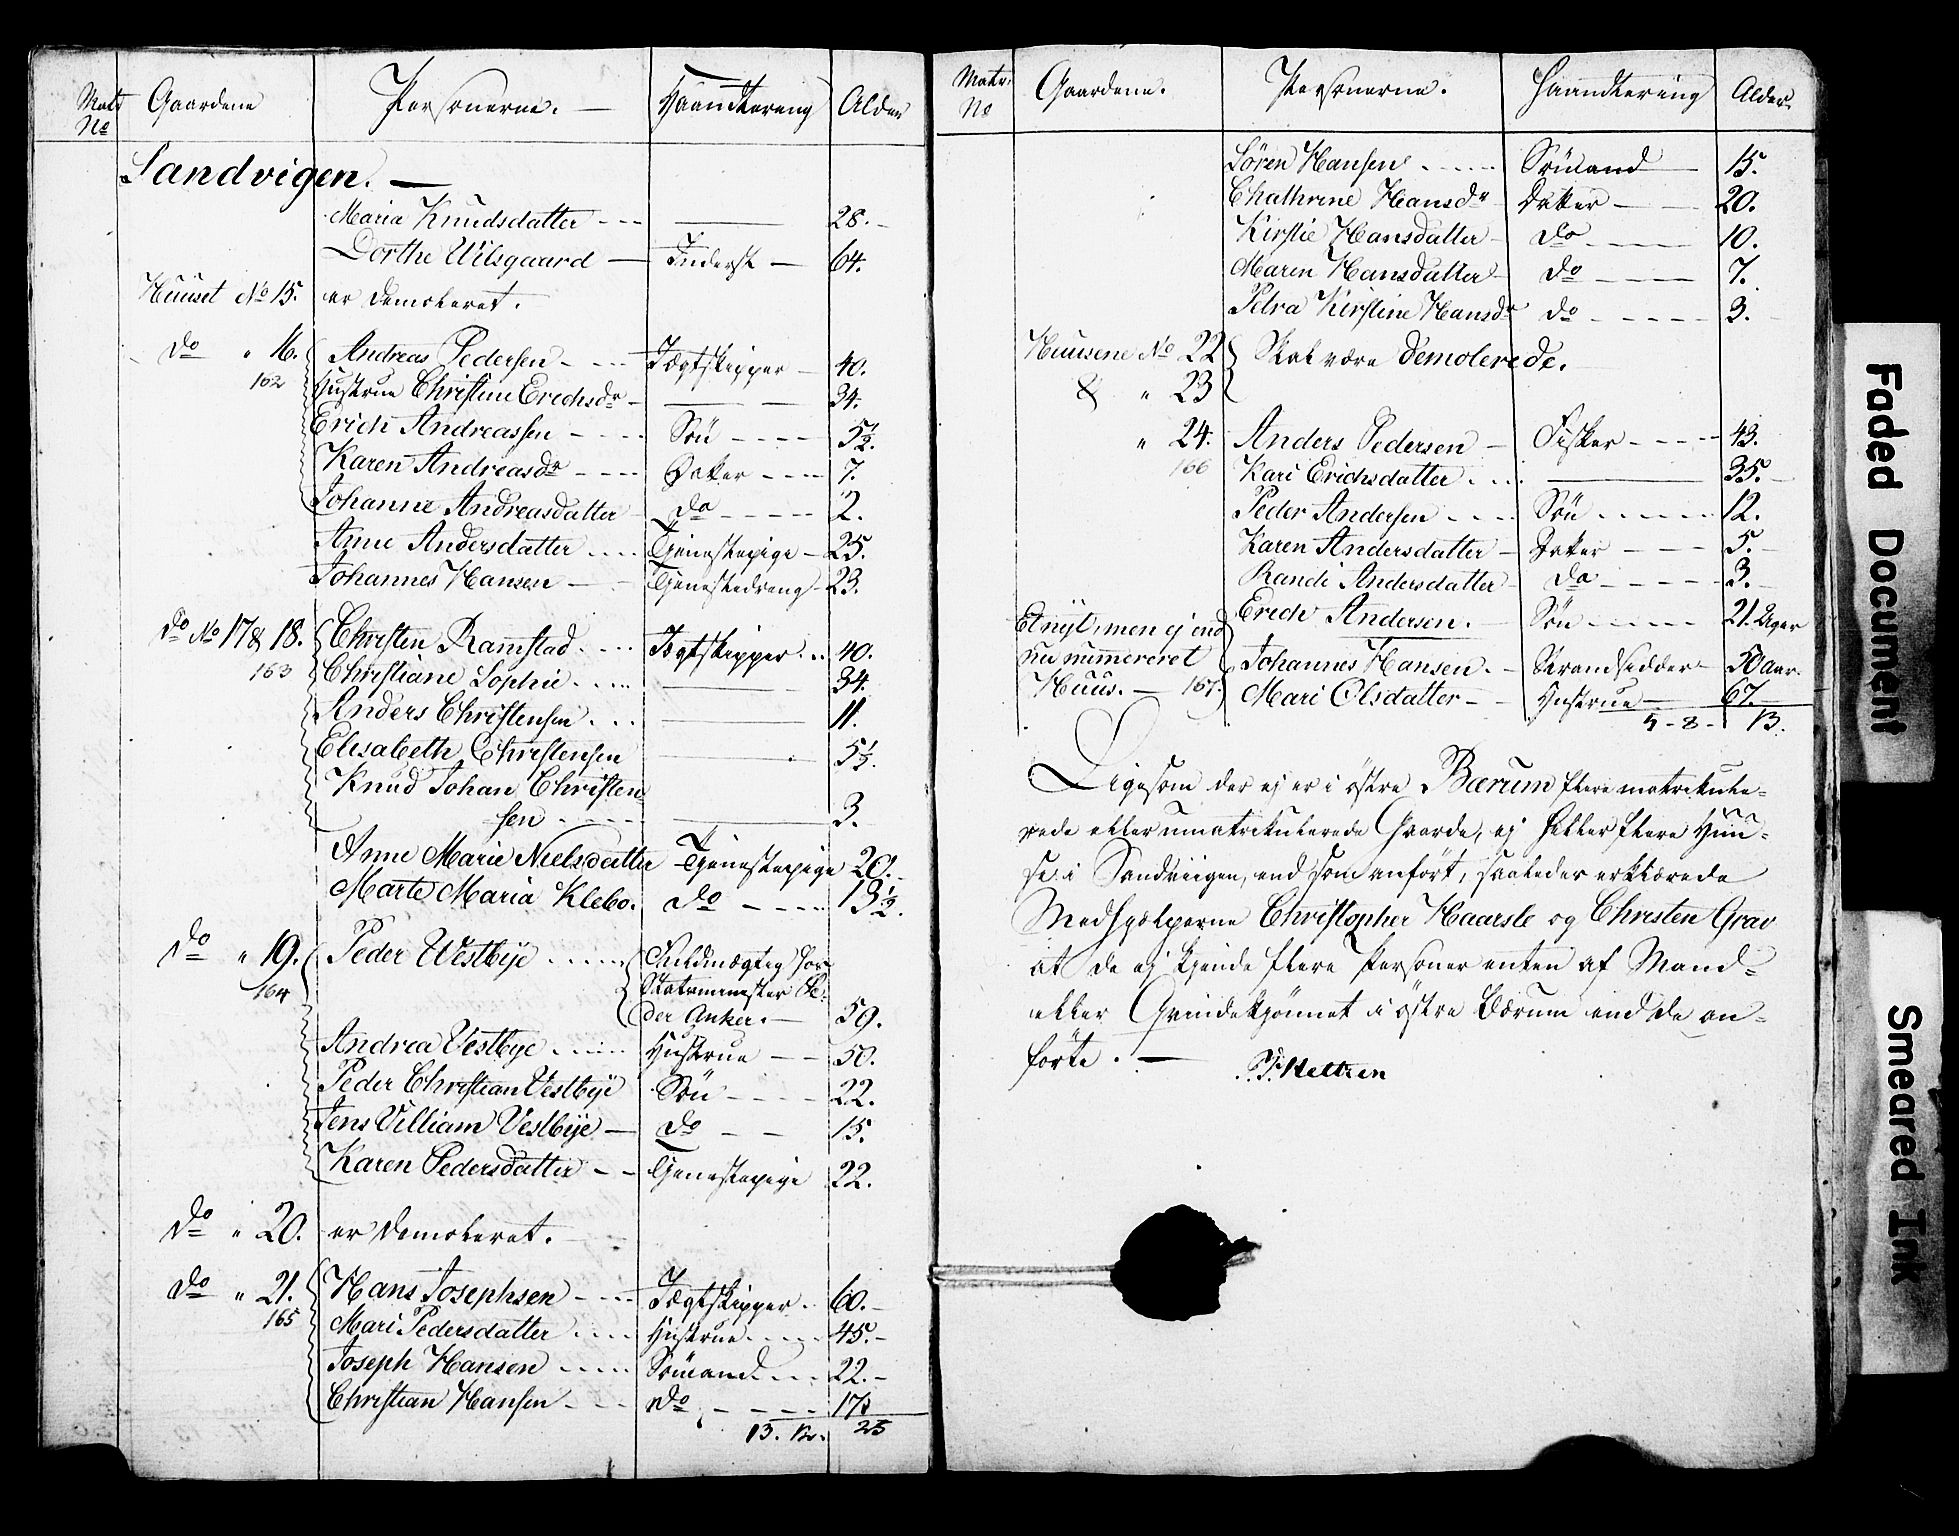 Matr No Gaardene Personerne. Haandtering Alder
Sandvigen.
Maria Knudsdatter 28.
Dorthe Wilsgaard Inderst 64.
Huuset No 15. er demoleret.
do " 16. Andreas Pedersen Jægtskipper 40.
162 Hustrue Christine Erichsdr 34.
Erich Andreassen Sön 5½.
Karen Andreasdr Datter 7.
Johanne Andreasdatter do 2.
Anne Andersdatter Tjenestepige 25.
Johannes Hansen Tjenestedreng 23.
do No 17 & 18. Christen Ramstad Jægtskipper 40.
163 Christiane Sophie 34.
Anders Christensen 11.
Elisabeth Christensen 5½.
Knud Johan Christen
sen 3.
Anne Marie Nielsdatter Tjenestepige 20.
Marte Maria Klebo. do 13½.
do " 19. Peder Westbye Fuldmægtig for
164 Statsminister Pe-
der Anker. 59.
Andrea Vestbye Hustrue 50.
Peder Christian Vestbye Sön 22.
Jens Villiam Vestbye do 15.
Karen Pedersdatter Tjenestepige 22.
do " 20. er demoleret.
do " 21. Hans Josephsen Jægtskipper 60.
165 Mari Pedersdatter Hustrue 45.
Joseph Hansen Sömand 22.
Christian Hansen do 17.
13. 12. 25
Matr: No Gaardene. Personerne. Haandtering Alder.
Sören Hansen Sömand 15.
Chathrine Hansdr Datter 20.
Kirstie Hansdatter do 10.
Maren Hansdatter do 7.
Petra Kirstine Hansdr do 3.
Huusene No 22 Skal være demolerede.
& " 23
" 24. Anders Pedersen Fisker 43.
166 Kari Erichsdatter 35.
Peder Andersen Sön 12.
Karen Andersdatter Datter 5.
Randi Andersdatter do 3.
Erich Andersen. Sön 21. Uger
Et nyt, men ej end
nu numereret Johannes Hansen. Strandsidder 50 Aar.
Huus. 167. Mari Olsdatter Hustrue 67.
5 - 8 - 13.
Ligesom der ej er i östre Bærum flere matrikule-
rede eller umatrikulerede Gaarde, ej heller flere Huu-
se i Sandviigen, end som anfört, saaledes erklærede
Medhjelperne Christopher Haarste og Christen Grav
at de ej kjende flere Personer enten af Mand-
eller Qvindekjönnet i östre Bærum end de an-
förte.
Meltzen
Faded Document
Smeared Ink